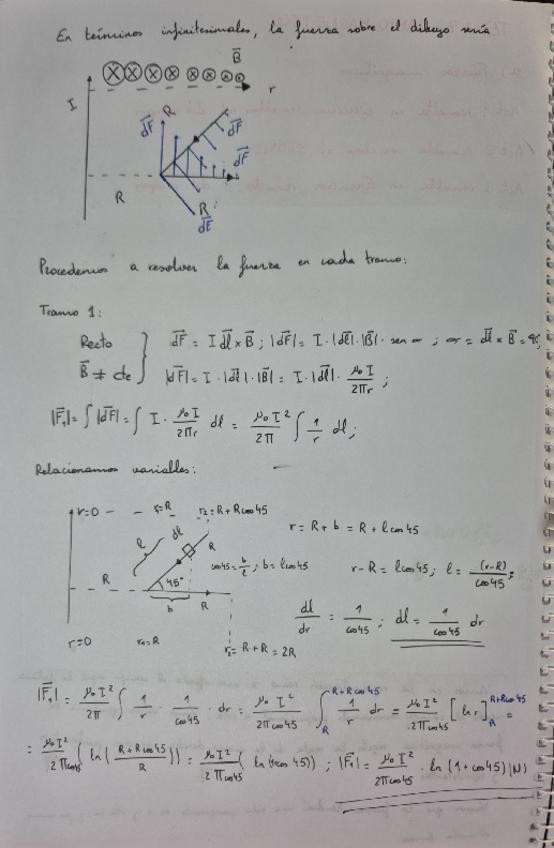 En términos infinitesimales, la fuerza sobre el dibujo sería
B⃗
I
r
dF⃗
R
dF⃗
dF⃗
R
R
dF⃗
Procedemos a resolver la fuerza en cada tramo:
Tramo 1:
Recto
B⃗ ≠ cte
dF⃗ = I dl⃗ × B⃗ ; |dF⃗| = I · |dl⃗| · |B⃗| · sen α ; α = dl⃗ × B⃗ = 90;
|dF⃗| = I · |dl⃗| · |B⃗| = I · |dl⃗| · μ₀ I / 2πr ;
|F⃗₁| = ∫ |dF⃗| = ∫ I · μ₀ I / 2πr dl = μ₀ I² / 2π ∫ 1/r dl ;
Relacionamos variables:
r=0 r₁=R r₂=R+Rcos45
l dl R
45°
R b R
cos45 = b/l ; b = lcos45
r=0 r₁=R r₂=R+R=2R
r = R + b = R + lcos45
r-R = lcos45 ; l = (r-R)/cos45 ;
dl/dr = 1/cos45 ; dl = 1/cos45 dr
|F⃗₁| = μ₀ I² / 2π ∫ 1/r · 1/cos45 · dr = μ₀ I² / 2πcos45 ∫_R^{R+Rcos45} 1/r dr = μ₀ I² / 2πcos45 [ln r]_R^{R+Rcos45} =
= μ₀ I² / 2πcos45 ( ln( (R+Rcos45)/R )) = μ₀ I² / 2πcos45 ( ln(1+cos45)) ; |F⃗₁| = μ₀ I² / 2πcos45 · ln (1+cos45) (N)